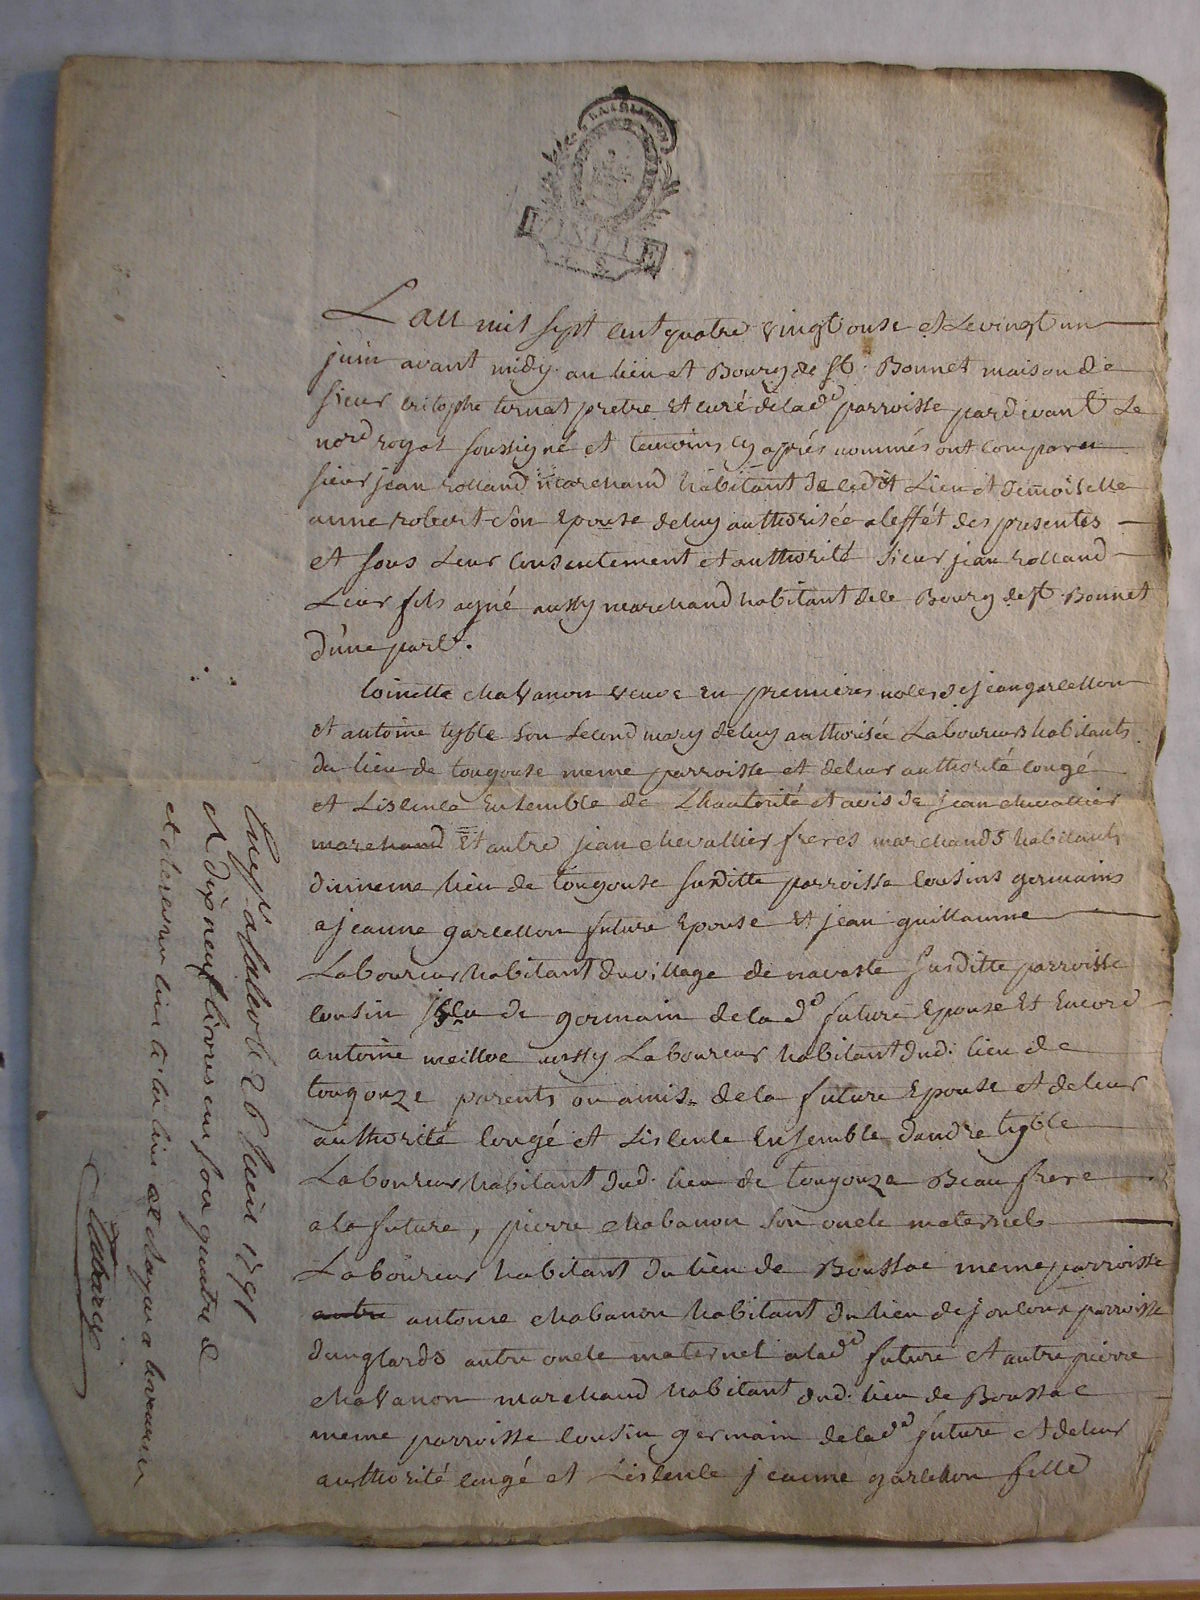 Lan mil sept cent quatre vingt onse et Le vingt un
juin avant midy au lieu et Bourg de St. Bonnet maison de
sieur critophe ternat pretre et curé de lad.e parroisse pardevant Le
nore royal soussigné et temoins cy aprés nommés ont comparu
sieur jean rolland marchand habitant de cedit Lieu et demoiselle
anne robert son Epouse de luy authorisée a leffét des presentes
et sous Leur consentement et authorité sieur jean rolland
Leur fils ayné aussy marchand habitant dele Bourg de St. Bonnet
d'une part.
toinette chavanon veuve en premieres noces de jean garcellon
et antoine tyble son second mary de luy authorisée Laboureurs habitants
du lieu de tougouse meme parroisse et de leur authorité congé
et Liscence Ensemble de Lhautorité et avis de jean chevallier
marchand et autre jean chevallier freres marchands habitants
du meme lieu de tougouse susditte parroisse cousins germains
a jeanne garcellon future Epouse et jean guillaume
Laboureur habitant du village de navaste susditte parroisse
cousin issu de germain de lad.e future Epouse et Encore
antoine aussy Laboureur habitant dud. lieu de
tougouze parents ou amis de la future Epouse et de leur
authorité congé et Liscence Ensemble dandre tyble
Laboureur habitant dud. lieu de tougouze Beau frere
a la future, pierre chabanon son oncle maternel
Laboureur habitant du lieu de Boussac meme parroisse
autre antoine chabanon habitant du lieu de parroisse
danglards autre oncle maternel a lad.e future et autre pierre
chavanon marchand habitant dud. lieu de Boussac
meme parroisse cousin germain de lad.e future et de leur
authorité congé et Liscence jeanne garcellon fille
a 26 juin 1791
et dix neuf livres